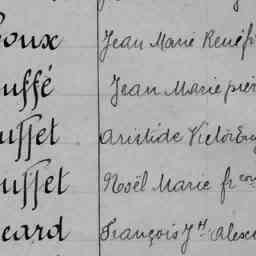 oux Jean Marie René fr
uffé Jean Marie pier
uffet aristide Victor Eug
uffet Noël Marie fr çois
eard François J.h Alexa